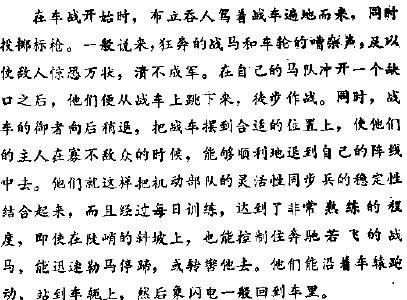 在车战开始时，布立吞人驾着战车遍地而来，同时
投掷标枪。一般说来，狂奔的战马和车轮的嘈杂声，足以
使敌人惊恐万状，溃不成军。在自己的马队冲开一个缺
口之后，他们便从战车上跳下来，徒步作战。同时，战
车的御者向后稍退，把战车摆到合适的位置上，使他们
的主人在寡不敌众的时候，能够顺利地退到自己的阵线
中去。他们就这样把机动部队的灵活性同步兵的稳定性
结合起来，而且经过每日训练，达到了非常熟练的程
度，即使在陡峭的斜坡上，也能控制住奔驰若飞的战
马，能迅速勒马停蹄，或转辔他去。他们能沿着车辕跑
动，站到车轭上，然后象闪电一般回到车里。